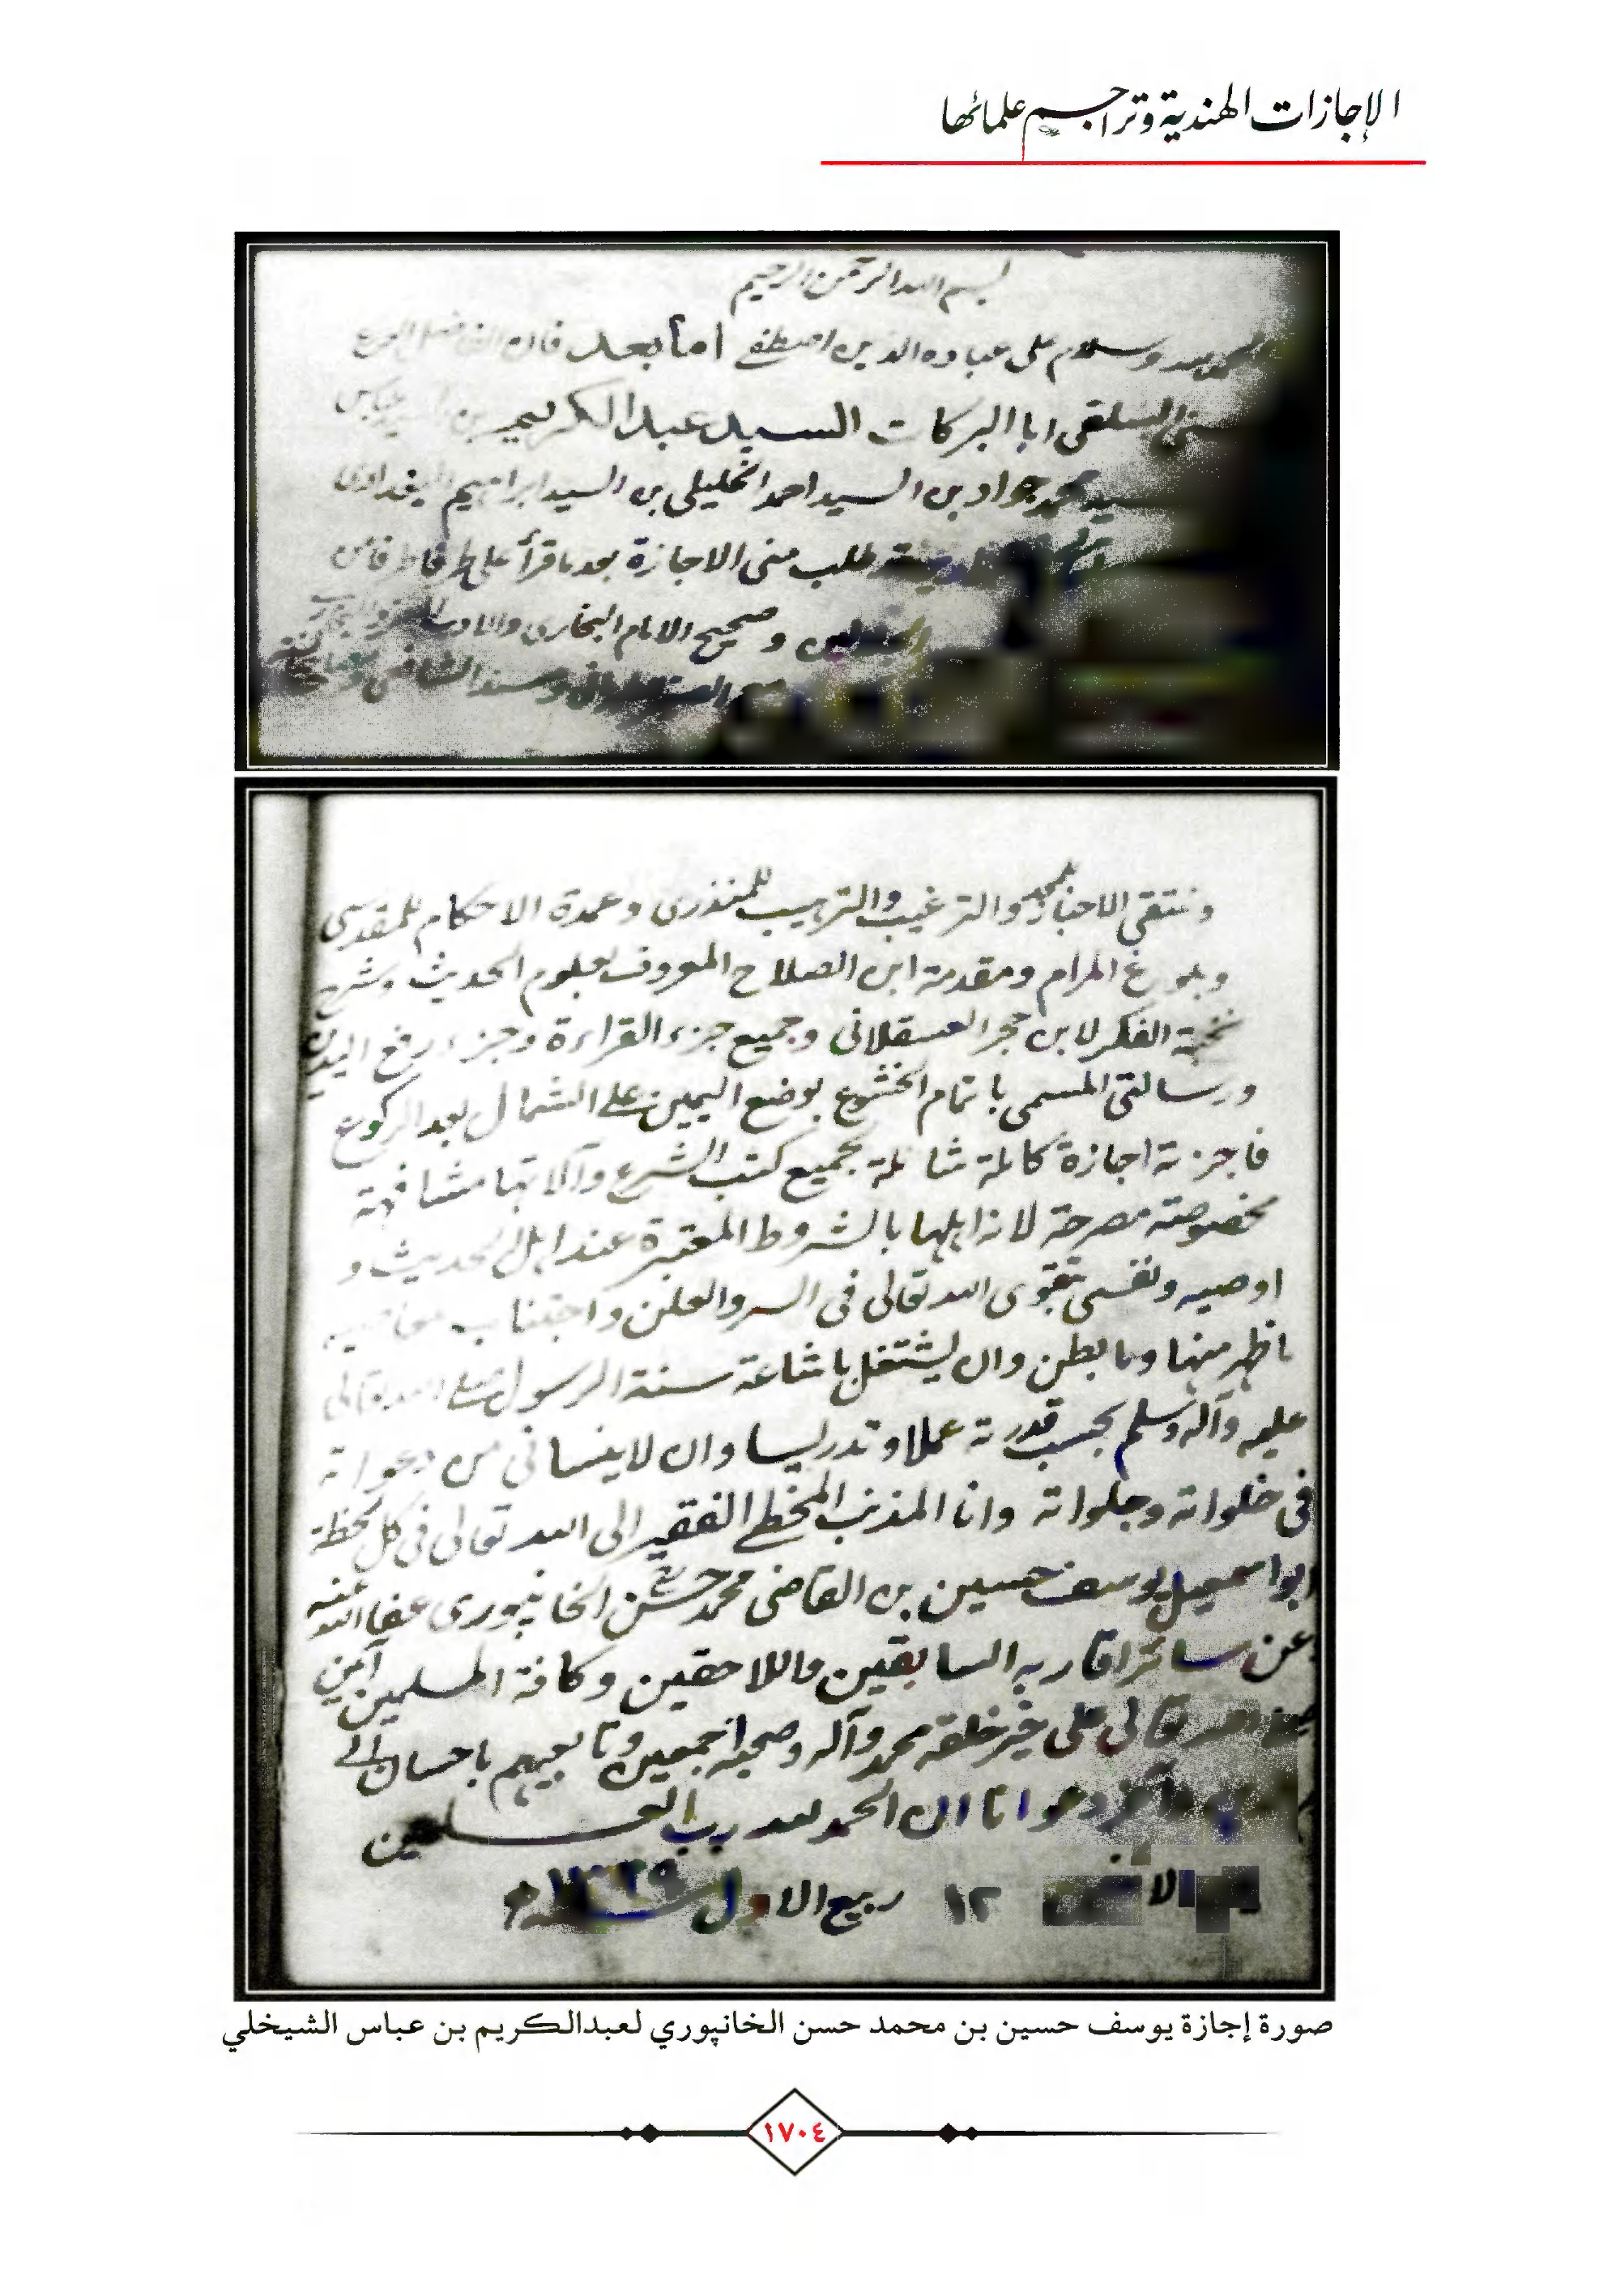 الإجازات الهندية وتراجم علمائها
بسم الله الرحمن الرحيم
الحمد لله وسلام على عباده الذين اصطفى أما بعد فان الفاضل
السلفى ابا البركات السيد عبد الكريم بن السيد عباس
سيد محمد جواد بن السيد احمد الخليلى بن السيد ابراهيم البغدادى
طلب منى الاجازة بعد ما قرأ على
وصحيح الامام البخارى والادب المفرد
ومسند الشافعى
ومنتقى الاخبار للمجد والترغيب والترهيب للمنذرى وعمدة الاحكام للمقدسى
وبلوغ المرام ومقدمة ابن الصلاح المعروف بعلوم الحديث وشرح
نخبة الفكر لابن حجر العسقلانى وجميع جزء القراءة وجزء رفع اليدين
ورسالتى المسمى باتمام الخشوع بوضع اليمين على الشمال بعد الركوع
فاجزته اجازة كاملة شاملة بجميع كتب الشرع وآلاتها مشافهة
مخصوصة مصرحة لانه اهلها بالشروط المعتبرة عند اهل الحديث و
اوصيه ونفسى بتقوى الله تعالى فى السر والعلن واجتناب
ما ظهر منها وما بطن وان يشتغل باشاعة سنة الرسول صلى الله تعالى
عليه وآله وسلم بحسب قدرته عملا وتدريسا وان لا ينسانى من دعواته
فى خلواته وجلواته وانا المذنب المخطى الفقير الى الله تعالى فى كل لحظة
ابو اسمعيل يوسف حسين بن القاضى محمد حسن الخانپورى عفا الله عنه
وعن سائر اقاربه السابقين واللاحقين وكافة المسلمين آمين
تعالى على خير خلقه محمد وآله وصحبه اجمعين وتابعيهم باحسان الى
وآخر دعوانا ان الحمد لله رب العلمين
١٢ ربيع الاول سنة ١٣٢٩
صورة إجازة يوسف حسين بن محمد حسن الخانپوري لعبدالكريم بن عباس الشيخلي
١٧٠٤